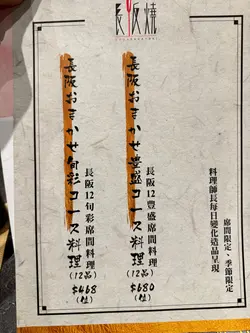 長阪燒
席間限定、季節限定
料理師長每日變化造品呈現
長阪おまかせ豊盛コース料理(12品)
長阪12豐盛席間料理
$680(位)
長阪おまかせ旬彩コース料理(12品)
長阪12旬彩席間料理
$468(位)